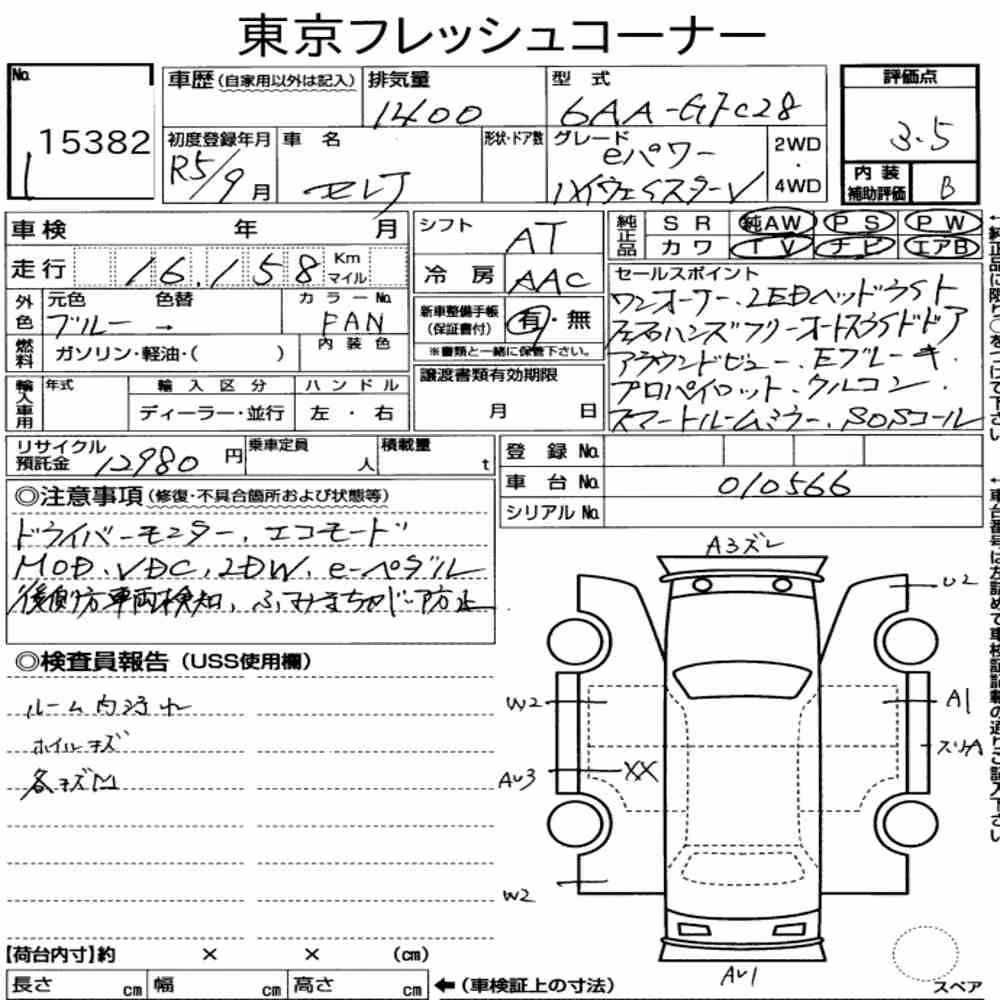 東京フレッシュコーナー
No.
15382
1
車歴(自家用以外は記入)
排気量
1400
型 式
6AA-GFC28
評価点
3.5
内装補助評価
B
初度登録年月
R5/9月
車 名
セレナ
形状・ドア数
グレード
eパワー
ハイウェイスターV
2WD
・
4WD
車検 年 月
走行 16,158 Km マイル
シフト
AT
冷房
AAC
純正品
SR 純AW PS PW
カワ TV ナビ エアB
外色
元色 色替
ブルー →
カラーNo.
FAN
内装色
燃料
ガソリン・軽油・( )
新車整備手帳
(保証書付)
有・無
※書類と一緒に保管下さい。
セールスポイント
ワンオーナー、LEDヘッドライト
左右ハンズフリーオートスライドドア
アラウンドビュー、Eブレーキ
プロパイロット、クルコン、
スマートルームミラー、SOSコール
輸入車用
年式
輸入区分
ディーラー・並行
ハンドル
左・右
譲渡書類有効期限
月 日
リサイクル預託金 12980円
乗車定員 人
積載量 t
登録No.
車台No. 010566
シリアルNo.
◎注意事項(修復・不具合箇所および状態等)
ドライバーモニター、エコモード
MOD、VDC、LDW、e-ペダル
後側方車両検知、ふみまちがい防止
◎検査員報告(USS使用欄)
ルーム内汚れ
ホイルキズ
各キズ凹
A3ズレ
U2
W2
A1
スリA
AU3
XX
W2
AU1
スペア
【荷台内寸】約 × × (cm)
長さ cm 幅 cm 高さ cm
←(車検証上の寸法)
←純正品に限り○をつけて下さい
←車台番号は左詰めで車検証記載の通りご記入下さい。